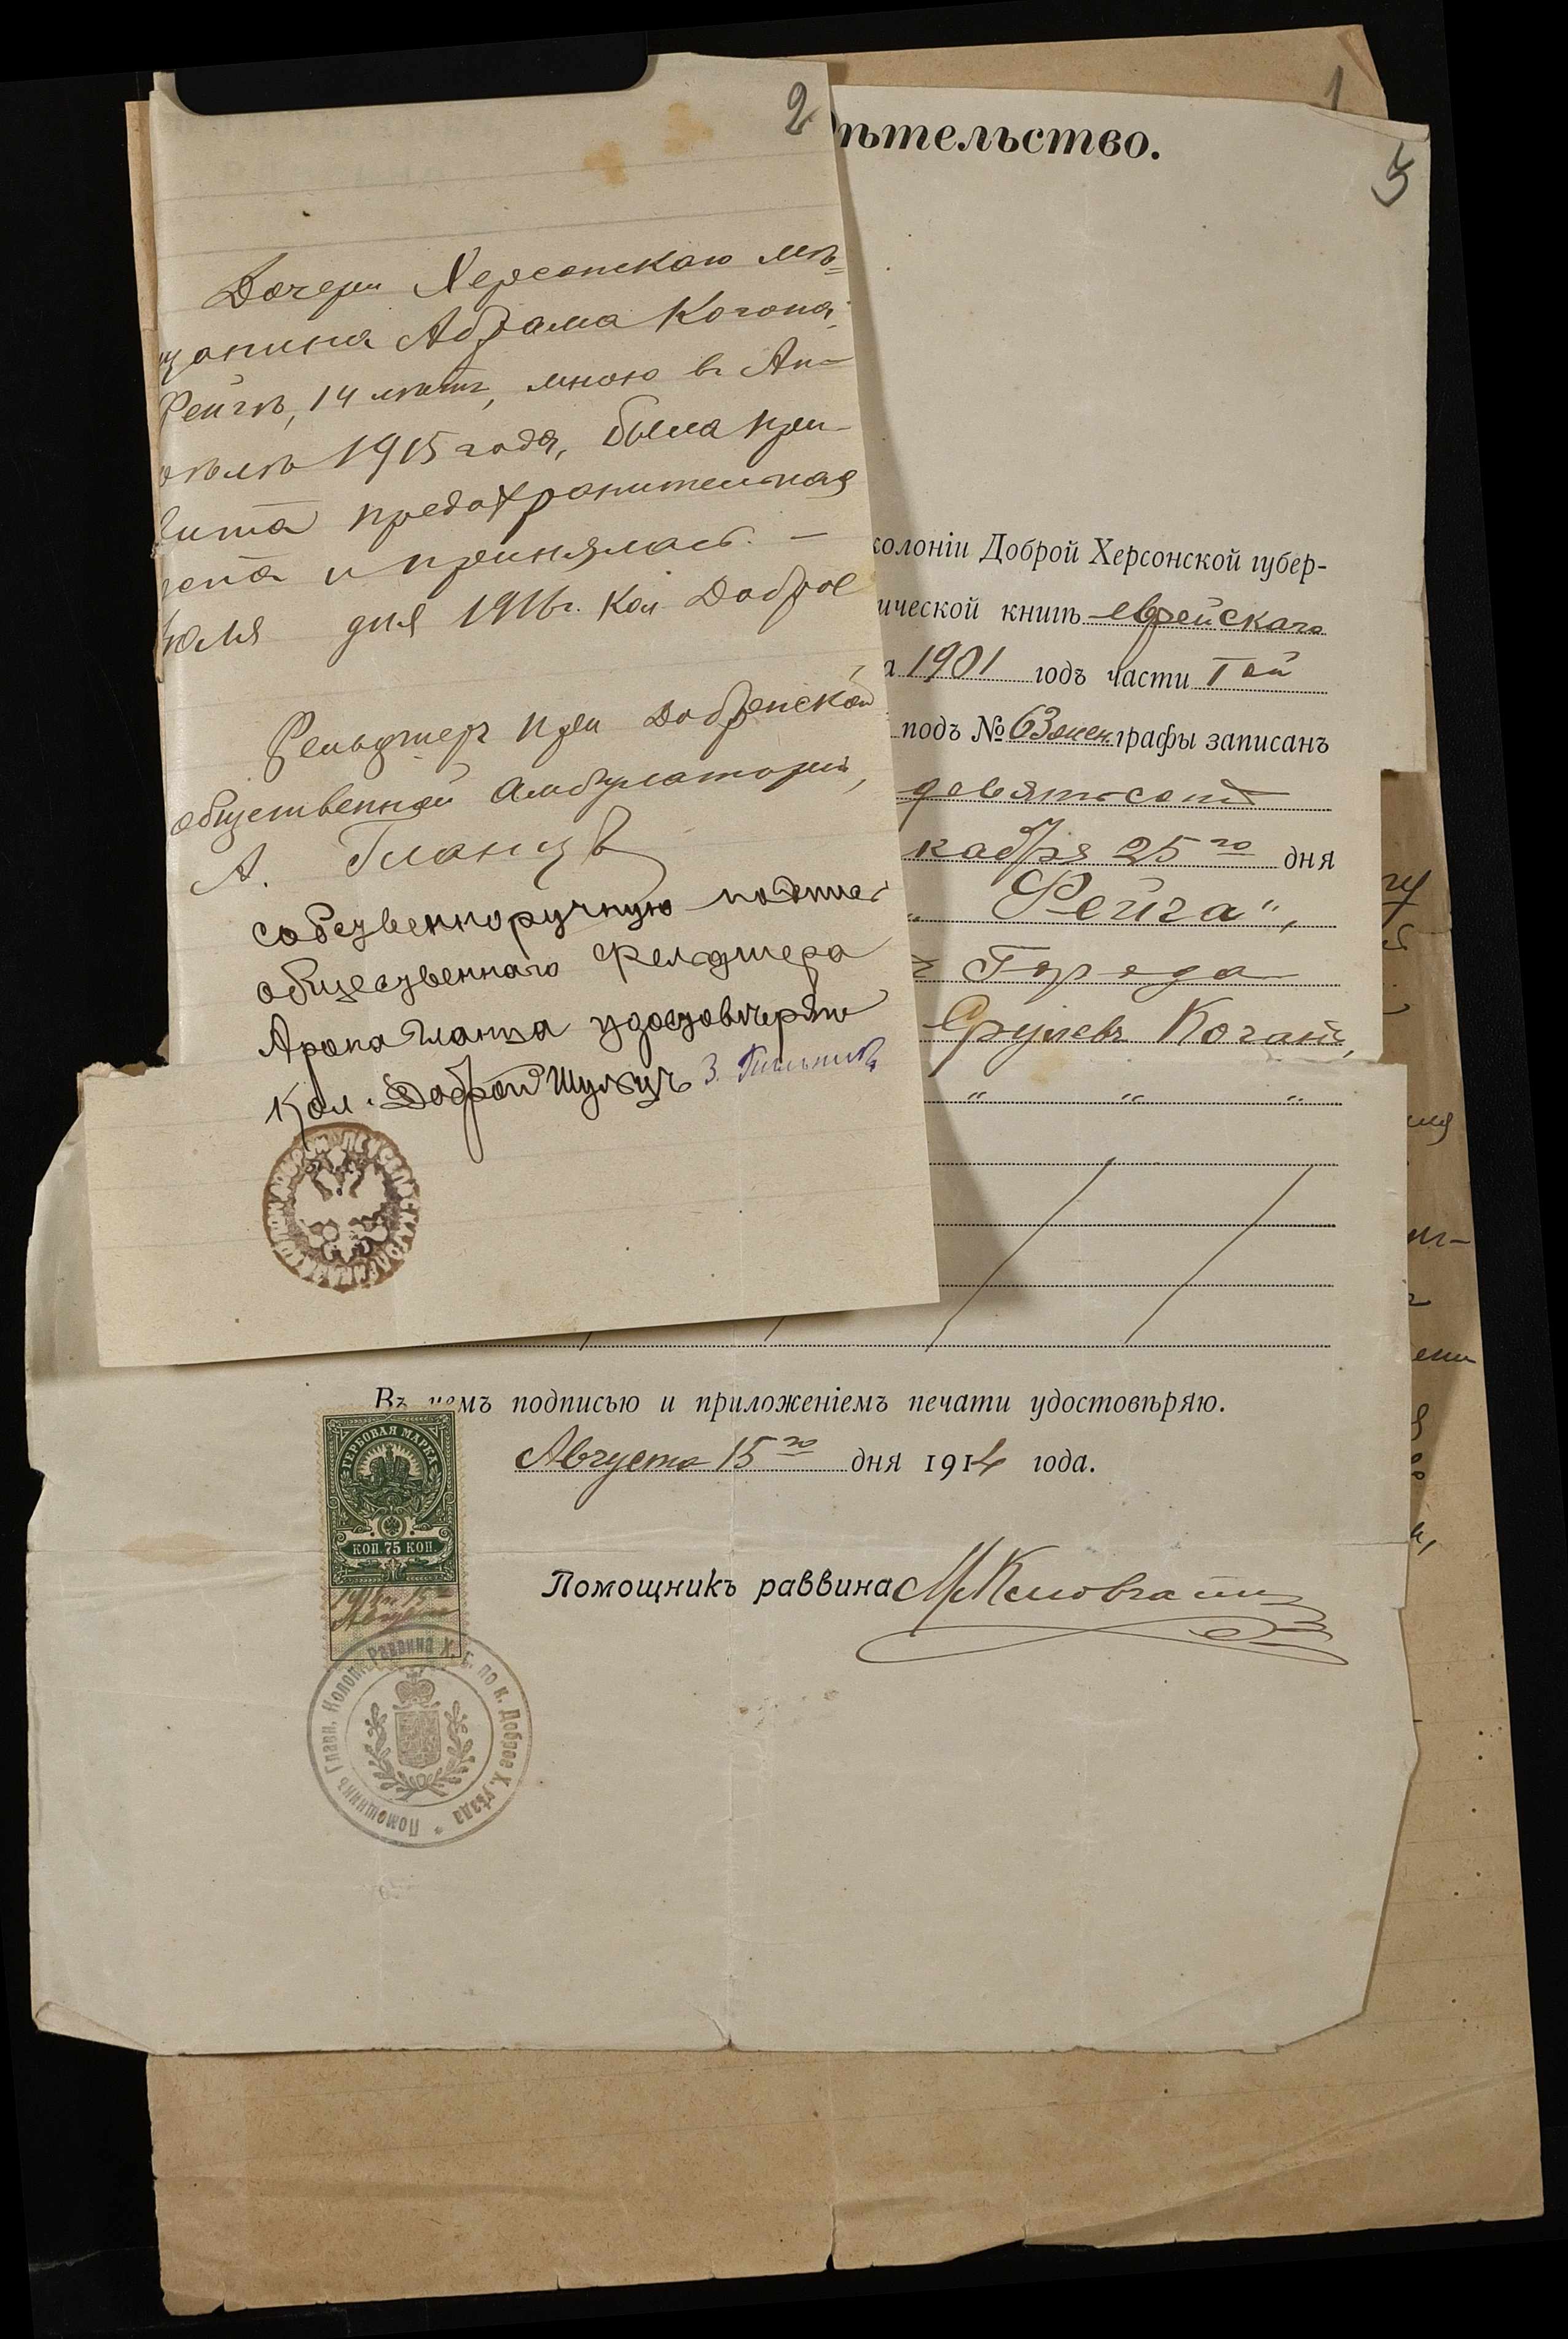 2
Дочери Херсонскаго мѣ=
щанина Абрама Когона,
Фейгѣ, 14 лѣтъ, мною въ Ап-
рѣлѣ 1915 года, была при-
вита предохранительная
оспа и принялась. —
Юля дня 1916 г. Кол Доброе
Фельдшеръ при Добренской
общественной амбулаторіи,
А. Гланцъ
собственноручную подпись
общественнаго фельдшера
Арона Гланца удостовѣряю
Кол. Доброй Шульцъ З.
1
5
ѣтельство.
колоніи Доброй Херсонской губер-
ической книгѣ еврейскаго
а 1901 годъ части I ой
подъ № 63 жен. графы записанъ
девятьсотъ
кабря 25 го дня
„ Фейга“,
Города
Срулевъ Коганъ,
„ „ „
Въ чемъ подписью и приложеніемъ печати удостовѣряю.
Августа 15 го дня 1914 года.
ГЕРБОВАЯ МАРКА
КОП. 75 КОП.
1914 г. 15
Августа
Помощникъ раввина
Помощникъ Главн. Колон. Раввина Х. Г. по к. Доброе Х. уѣзда